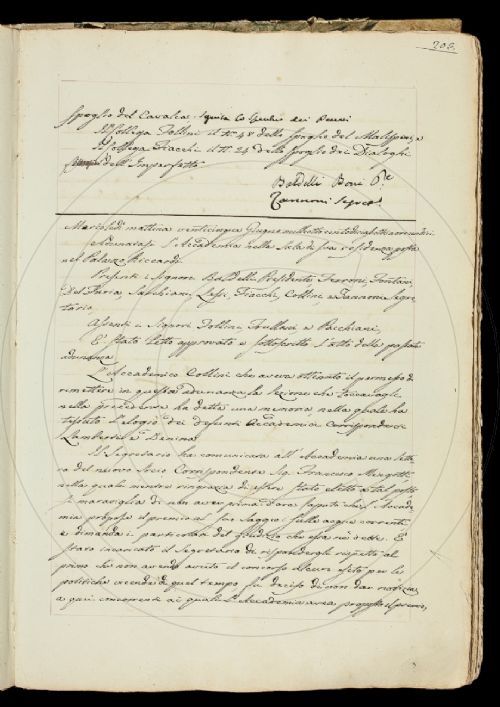 203.
Spoglio del Cavalca. Squita lo Specchio dei Peccati
Il Collega Follini il N.° 48 dello Spoglio del Malispini e
Il Collega Fiacchi il N.° 24 dello Spoglio dei Dialoghi
dell'Imperfetto
Baldelli Boni P.e
Zannoni Segret.o
Mercoledì mattina venticinque Giugno mille ottocento
Adunarasi l'Accademia nella Sala di sua residenza posta
nel Palazzo Riccardi.
Presenti i Signori Baldelli Presidente, Ferroni, Fontani,
Del Furia, Sarchiani, Lessi, Fiacchi, Collini, e Zannoni Segre-
tario.
Assenti i Signori Follini, Frullani e Pacchiani.
E' stato letto approvato e sottoscritto l'atto della passata
adunanza.
L'Accademico Collini che aveva ottenuto il permesso di
rimettere in questa adunanza la lezione che toccavagli
nella precedente ha detta una memoria nella quale ha
tessuto l'elogio dei defunti Accademici corrispondenti
Lamberti e Denina.
Il Segretario ha comunicata all'Accademia una lette-
ra del nuovo Socio Corrispondente Sig. Francesco Mengotti
nella quale mentre ringrazia di essere stato eletto a tal posto
si maraviglia di non aver prima d'ora saputo che l'Accade-
mia propose il premio al suo Saggio sulle acque correnti
e dimanda i particolari del giudizio che essa ne dette. E'
stato incaricato il Segretario di rispondergli rispetto al
primo che non avendo avuto il concorso alcun esito per le
politiche vicende di quel tempo, fu deciso di non dar notizia
a quei concorrenti ai quali l'Accademia avea proposto il premio,